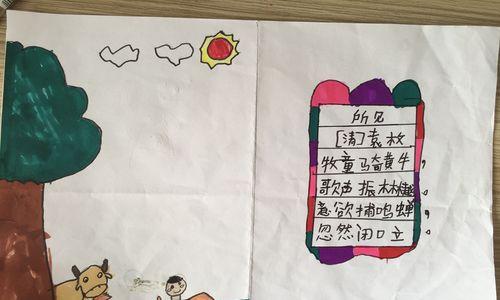 所见
[清]袁枚
牧童骑黄牛，
歌声振林樾。
意欲捕鸣蝉，
忽然闭口立。